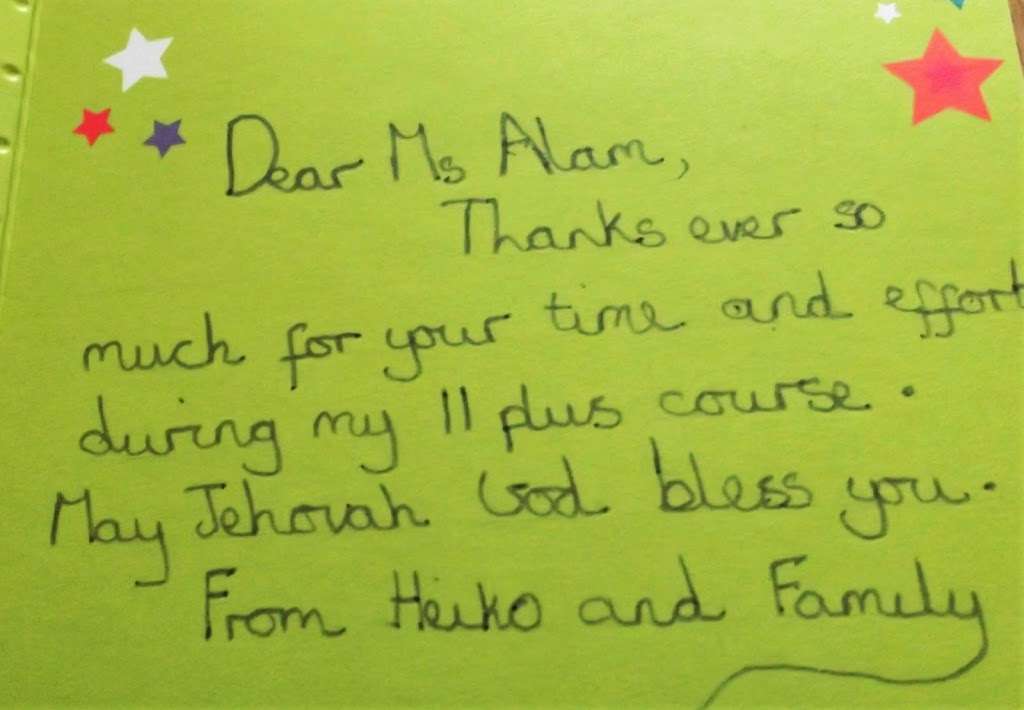 Dear Ms Alam,
Thanks ever so
much for your time and effort
during my 11 plus course.
May Jehovah God bless you.
From Heiko and Family